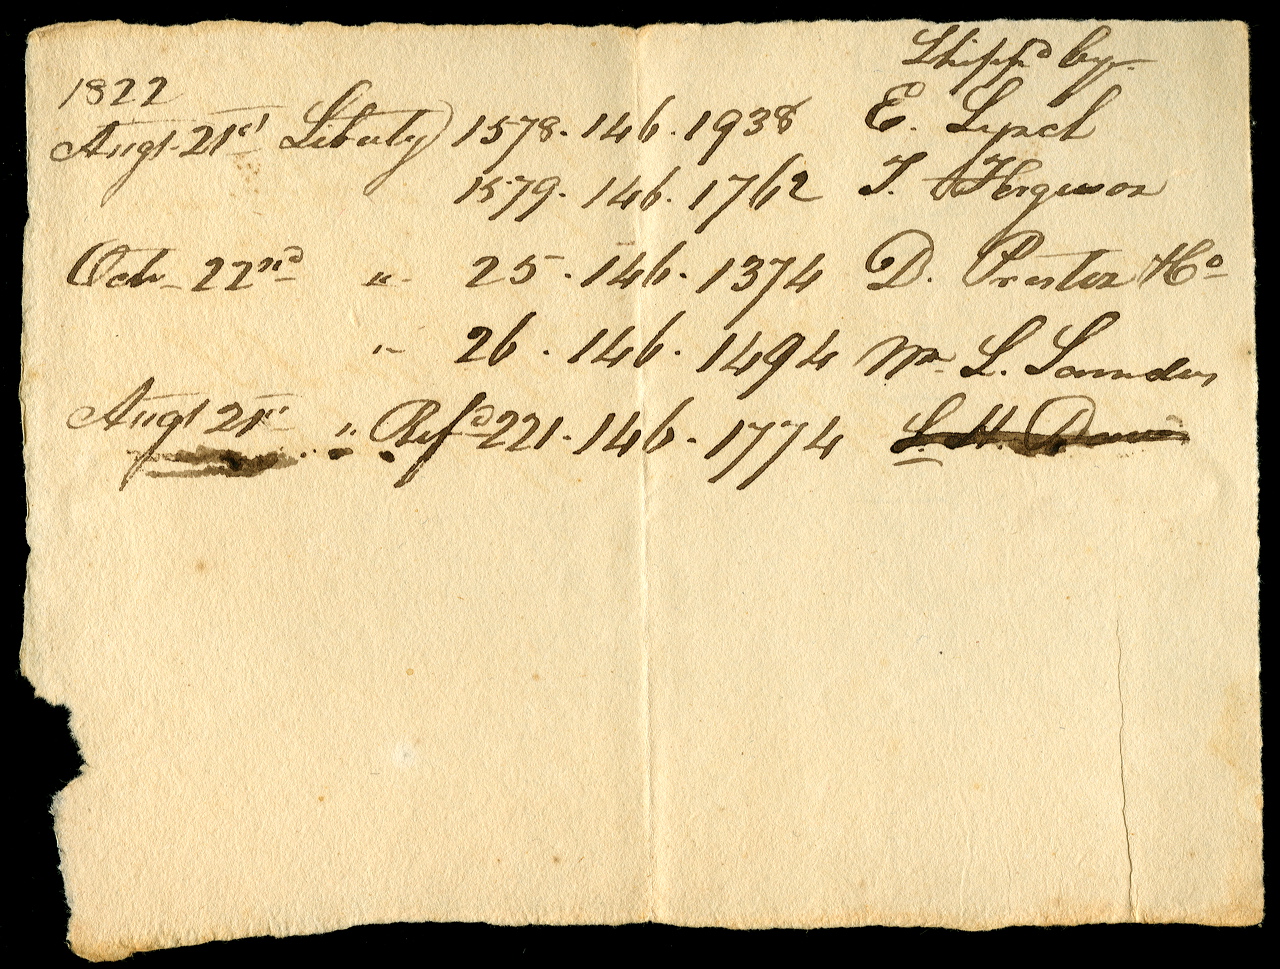 Shipp'd by
1822
Augt. 21st Liberty) 1578. 146. 1938 E. Lynch
1579. 146. 1762 T. Ferguson
Octr 22nd " 25. 146. 1374 D. Preston & Co
" 26. 146. 1494 Wm L. Saunders
Augt 21st " Refd 221. 146. 1774